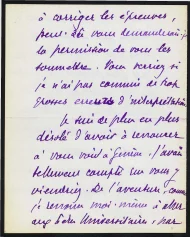 à corriger les épreuves,
peut-être vous demanderai-je
la permission de vous les
soumettre. Vous verrez si
je n'ai pas commis de trop
grosses erreurs d'interprétation.
Je suis de plus en plus
désolé d'avoir à renoncer
à vous voir à Genève. J'avais
tellement compté que vous y
viendriez. De l'aventure,
je renonce moi-même à aller
aux Universitaires, par